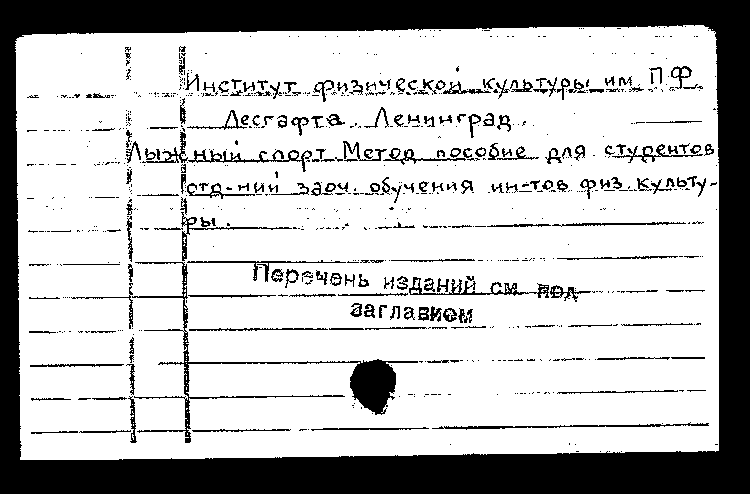 Институт физической культуры им. П.Ф.
Лесгафта. Ленинград.
Лыжный спорт. Метод. пособие для студентов
отд-ний заоч. обучения ин-тов физ. культу-
ры.
Перечень изданий см. под
заглавием